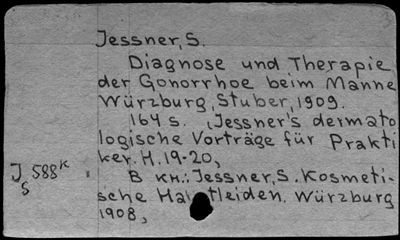 Jessner, S.
Diagnose und Therapie
der Gonorrhoe beim Manne
Würzburg, Stuber, 1909.
164 s. (Jessner's dermato
logische Vorträge für Prakti
ker. H. 19-20,
J 588 к
S
В кн.: Jessner, S. Kosmeti-
sche Ha tleiden. Würzburg
1908,